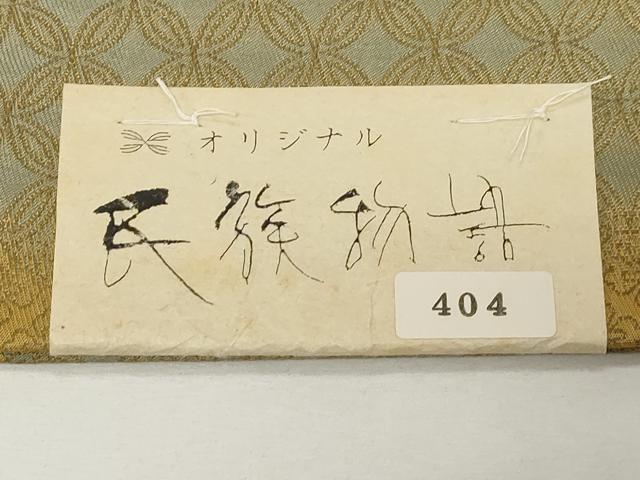 オリジナル
民族物語
404